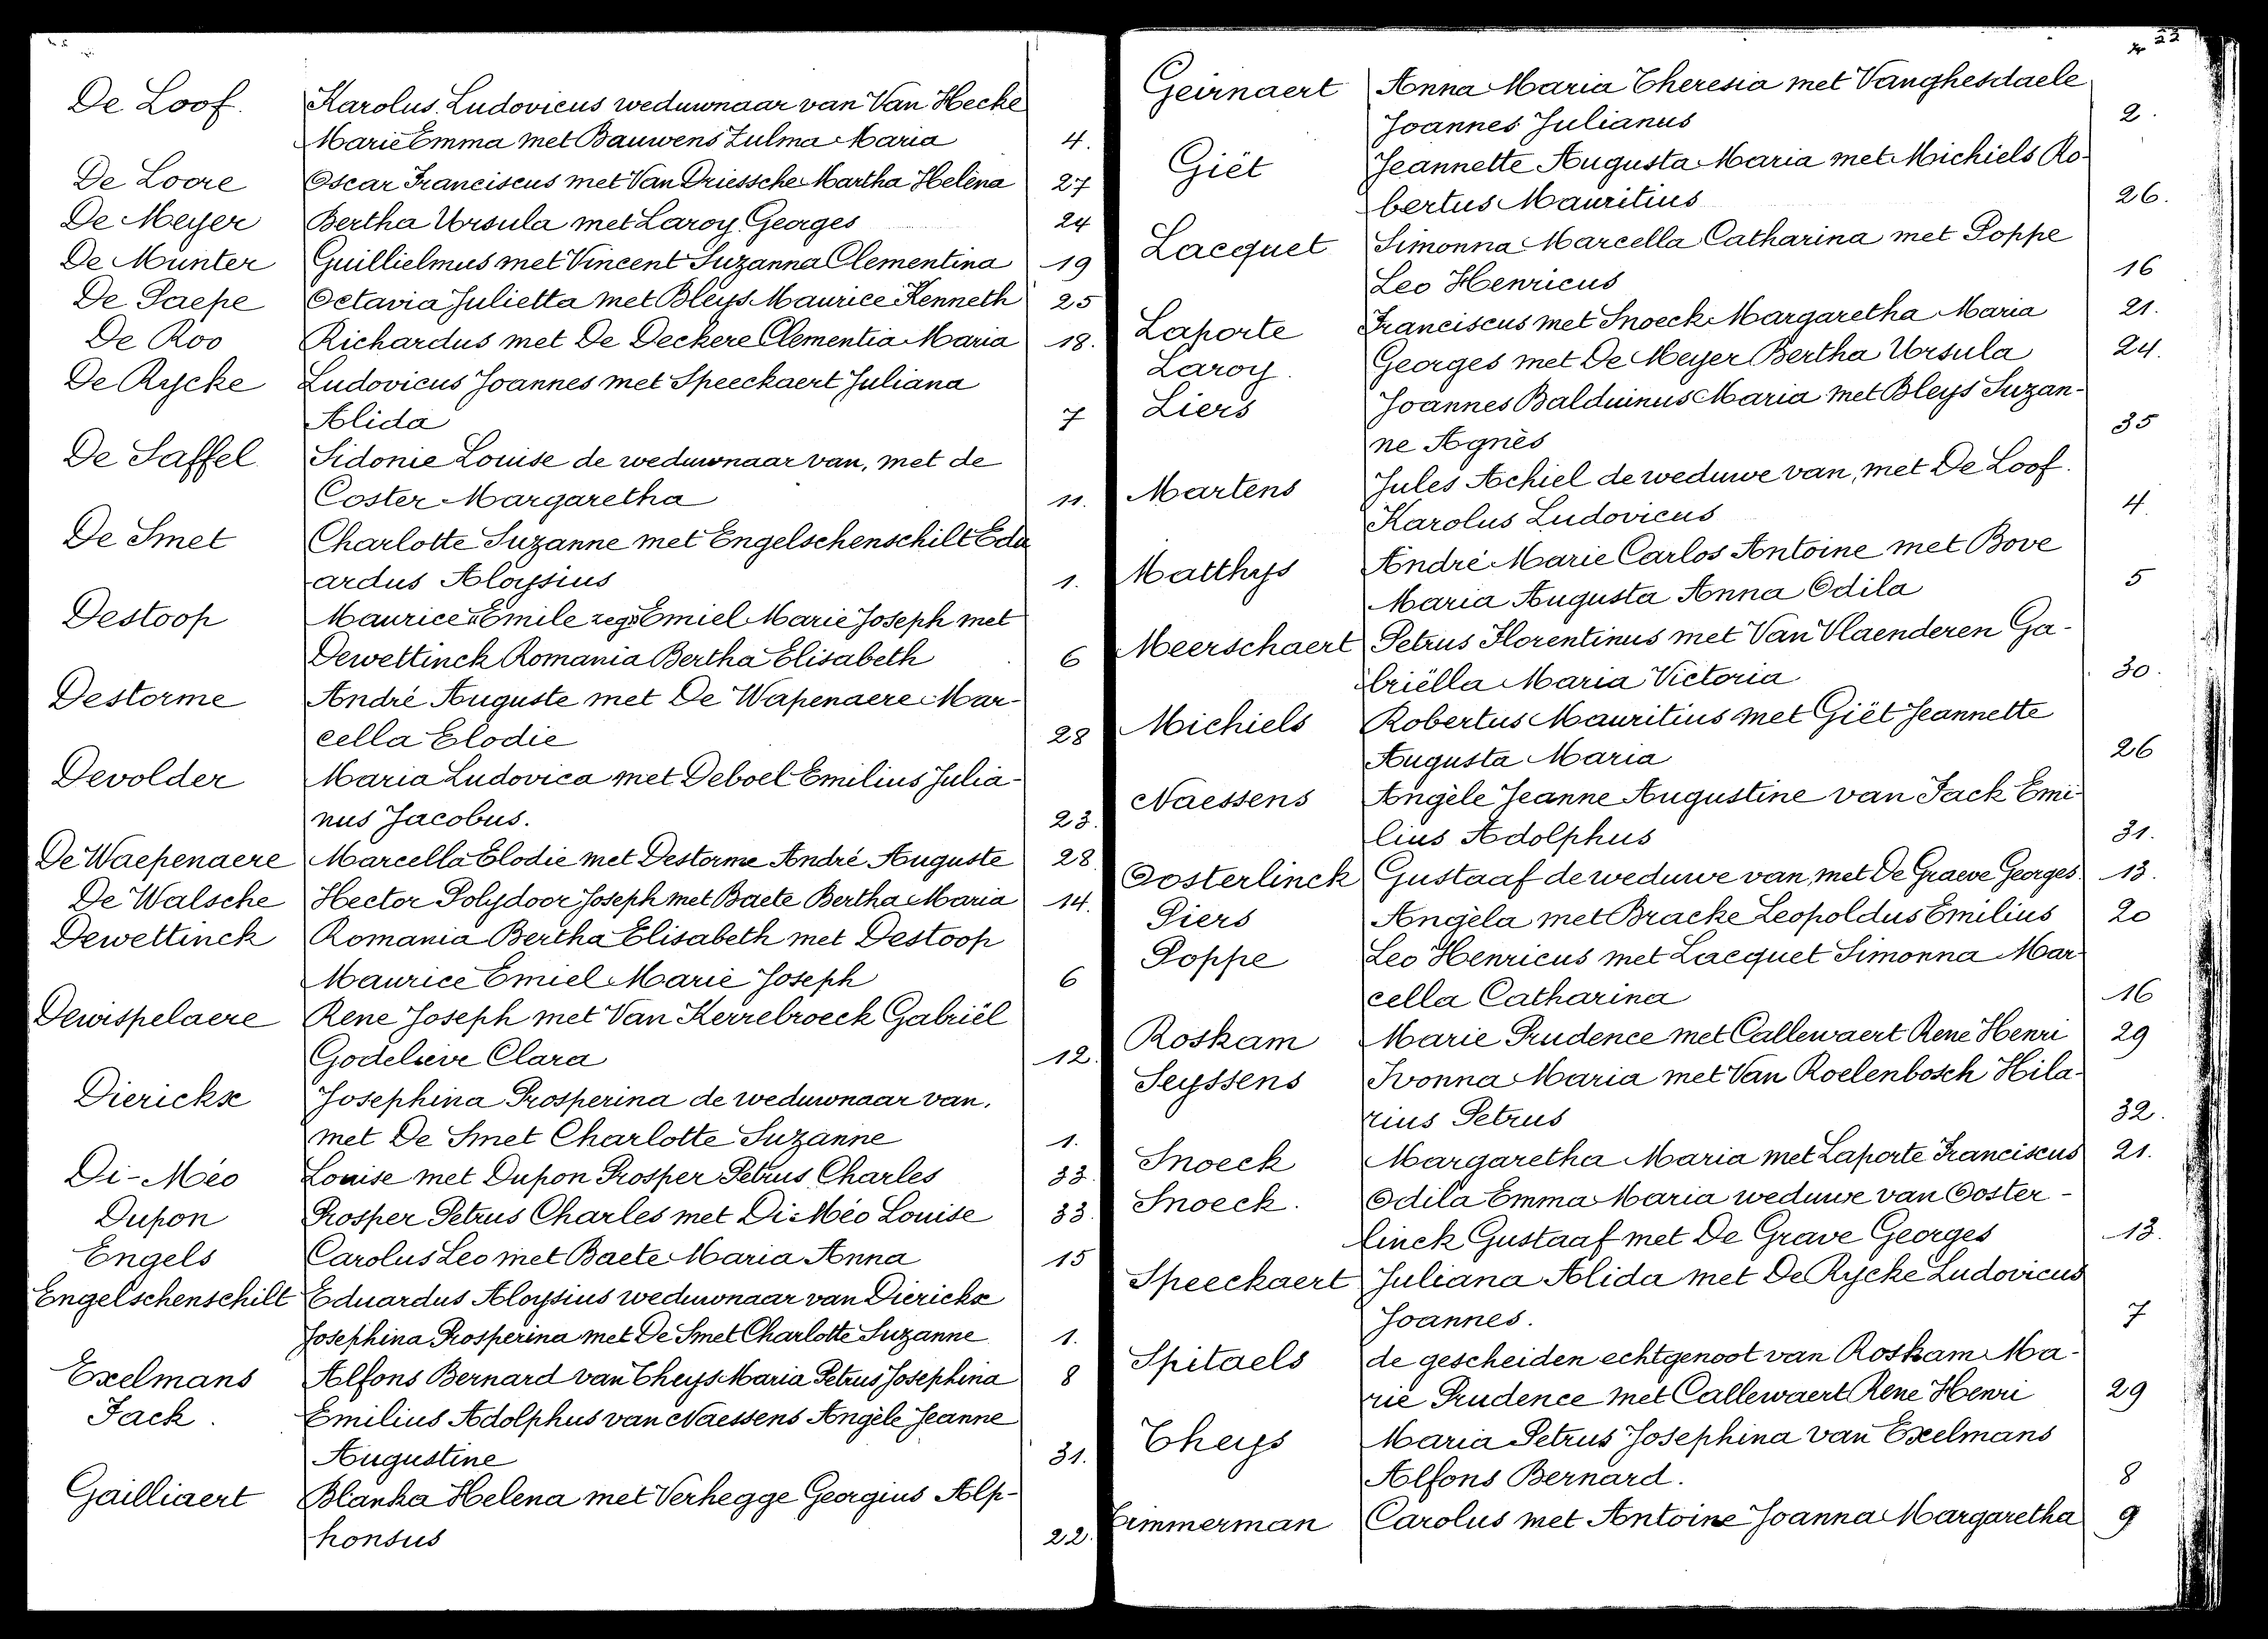 De Loof. Karolus Ludovicus weduwnaar van Van Hecke
Marie Emma met Bauwens Zulma Maria 4.
De Loore Oscar Franciscus met Van Driessche Martha Helèna 27
De Meyer Bertha Ursula met Laroy Georges 24
De Munter Guillielmus met Vincent Suzanna Clementina 19
De Paepe Octavia Julietta met Bleys Maurice Kenneth 25
De Roo Richardus met De Deckere Clementia Maria 18.
De Rycke Ludovicus Joannes met Speeckaert Juliana
Alida 7
De Saffel Sidonie Louise de weduwnaar van, met de
Coster Margaretha 11.
De Smet Charlotte Suzanne met Engelschenschilt Edu
ardus Aloysius 1.
Destoop Maurice "Emile zegs" Emiel Marie Joseph met
Dewettinck Romania Bertha Elisabeth 6
Destorme André Auguste met De Wapenaere Mar-
cella Elodie 28
Devolder Maria Ludovica met Deboel Emilius Julia-
nus Jacobus. 23.
De Waepenaere Marcella Elodie met Destorme André Auguste 28
De Walsche Hector Polydoor Joseph met Baete Bertha Maria 14.
Dewettinck Romania Bertha Elisabeth met Destoop
Maurice Emiel Marie Joseph 6
Dewispelaere Rene Joseph met Van Kerrebroeck Gabriël
Godelieve Clara 12.
Dierickx Josephina Prosperina de weduwnaar van,
met De Smet Charlotte Suzanne 1.
Di-Méo Louise met Dupon Prosper Petrus Charles 33.
Dupon Prosper Petrus Charles met Di-Méo Louise 33.
Engels Carolus Leo met Baete Maria Anna 15
Engelschenschilt Eduardus Aloysius weduwnaar van Dierickx
Josephina Prosperina met De Smet Charlotte Suzanne 1.
Exelmans Alfons Bernard van Theys Maria Petrus Josephina 8
Fack. Emilius Adolphus van Naessens Angèle Jeanne
Augustine 31.
Gailliaert Blanka Helena met Verhegge Georgius Alp-
honsus 22.
22
Geirnaert Anna Maria Theresia met Vanghesdaele
Joannes Julianus 2.
Giët Jeannette Augusta Maria met Michiels Ro-
bertus Mauritius 26.
Lacquet Simonna Marcella Catharina met Poppe
Leo Henricus 16
Laporte Franciscus met Snoeck Margaretha Maria 21.
Laroy. Georges met De Meyer Bertha Ursula 24.
Liers Joannes Balduinus Maria met Bleys Suzan-
ne Agnès 35
Martens Jules Achiel de weduwe van, met De Loof.
Karolus Ludovicus 4.
Matthys André Marie Carlos Antoine met Bove
Maria Augusta Anna Odila 5
Meerschaert Petrus Florentinus met Van Vlaenderen Ga-
briëlla Maria Victoria 30.
Michiels Robertus Mauritius met Giët Jeannette
Augusta Maria 26
Naessens Angèle Jeanne Augustine van Fack Emi-
lius Adolphus 31.
Oosterlinck Gustaaf de weduwe van, met De Graeve Georges. 13.
Piers Angèla met Bracke Leopoldus Emilius 20
Poppe Leo Henricus met Lacquet Simonna Mar-
cella Catharina 16
Roskam Marie Prudence met Callewaert Rene Henri 29
Seyssens Ivonna Maria met Van Roelenbosch Hila-
rius Petrus 32.
Snoeck Margaretha Maria met Laporte Franciscus 21.
Snoeck. Odila Emma Maria weduwe van Ooster-
linck Gustaaf met De Grave Georges 13.
Speeckaert Juliana Alida met De Rycke Ludovicus
Joannes. 7
Spitaels de gescheiden echtgenoot van Roskam Ma-
rie Prudence met Callewaert Rene Henri 29
Theys Maria Petrus Josephina van Exelmans
Alfons Bernard. 8
Timmerman Carolus met Antoine Joanna Margaretha 9